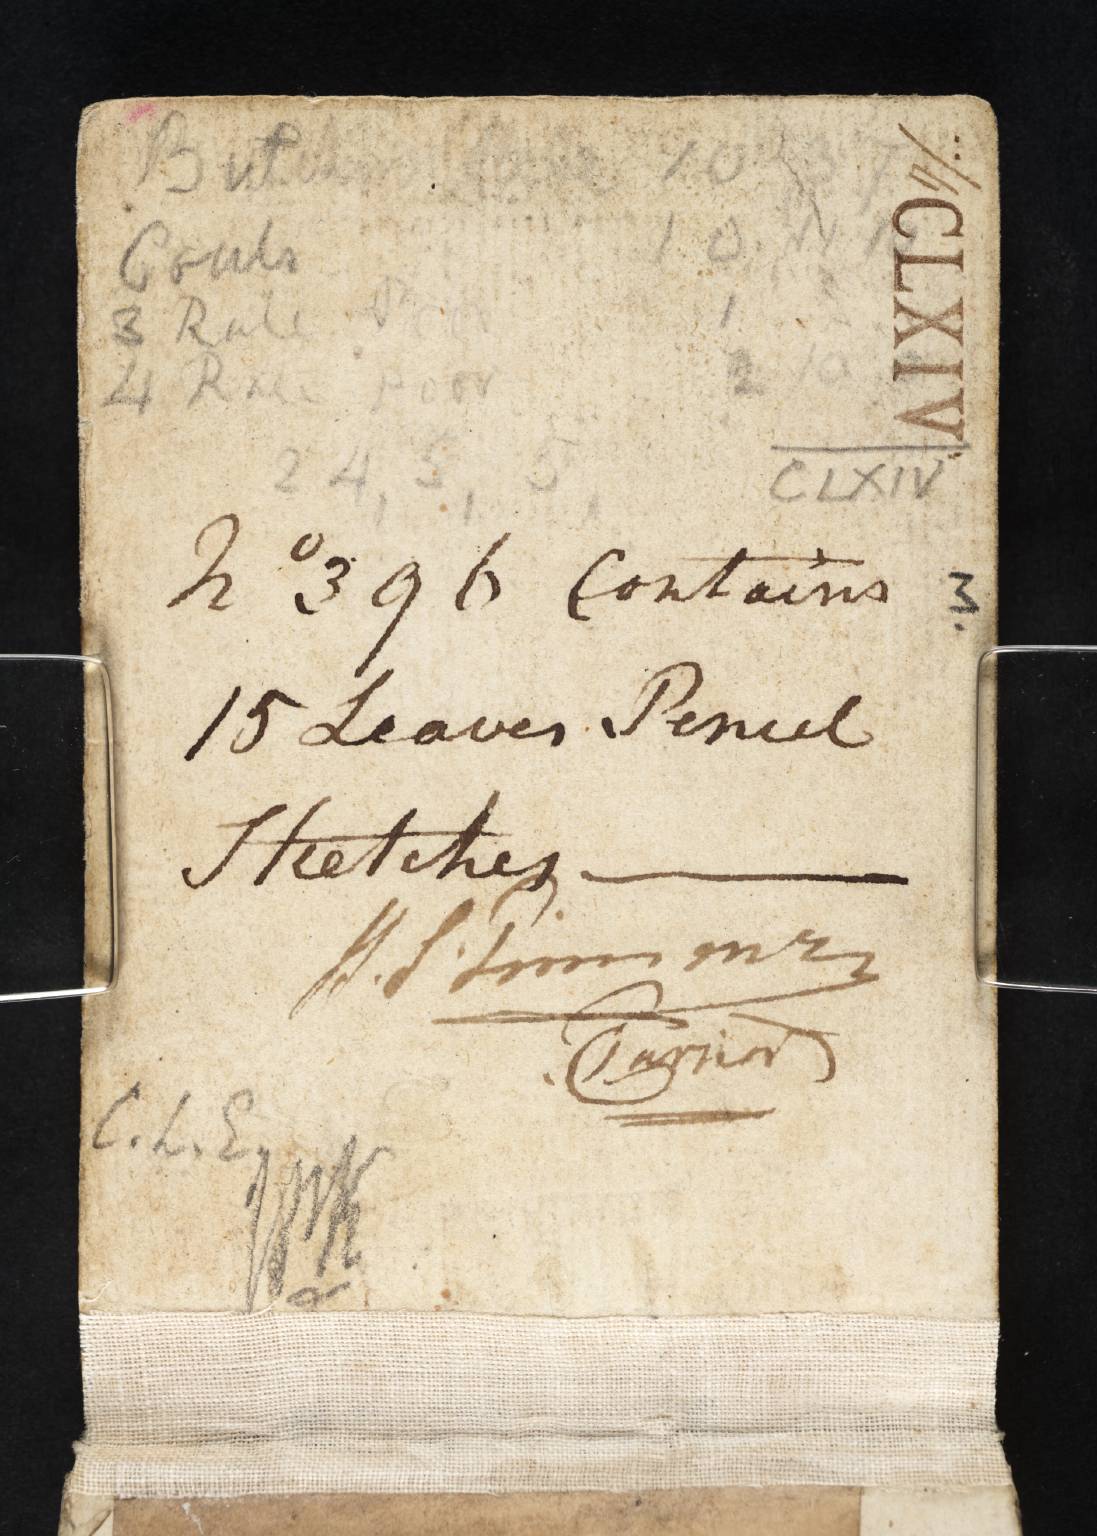 Coals 10
3 Rate Poor 1
4 Rate Poor 2 10
24, 5, 5,
CLXIV
CLXIV
No 396 Contains
3.
15 Leaves Pencil
Sketches
H. S. Trimmer
Turner
C. L. E.
JPK